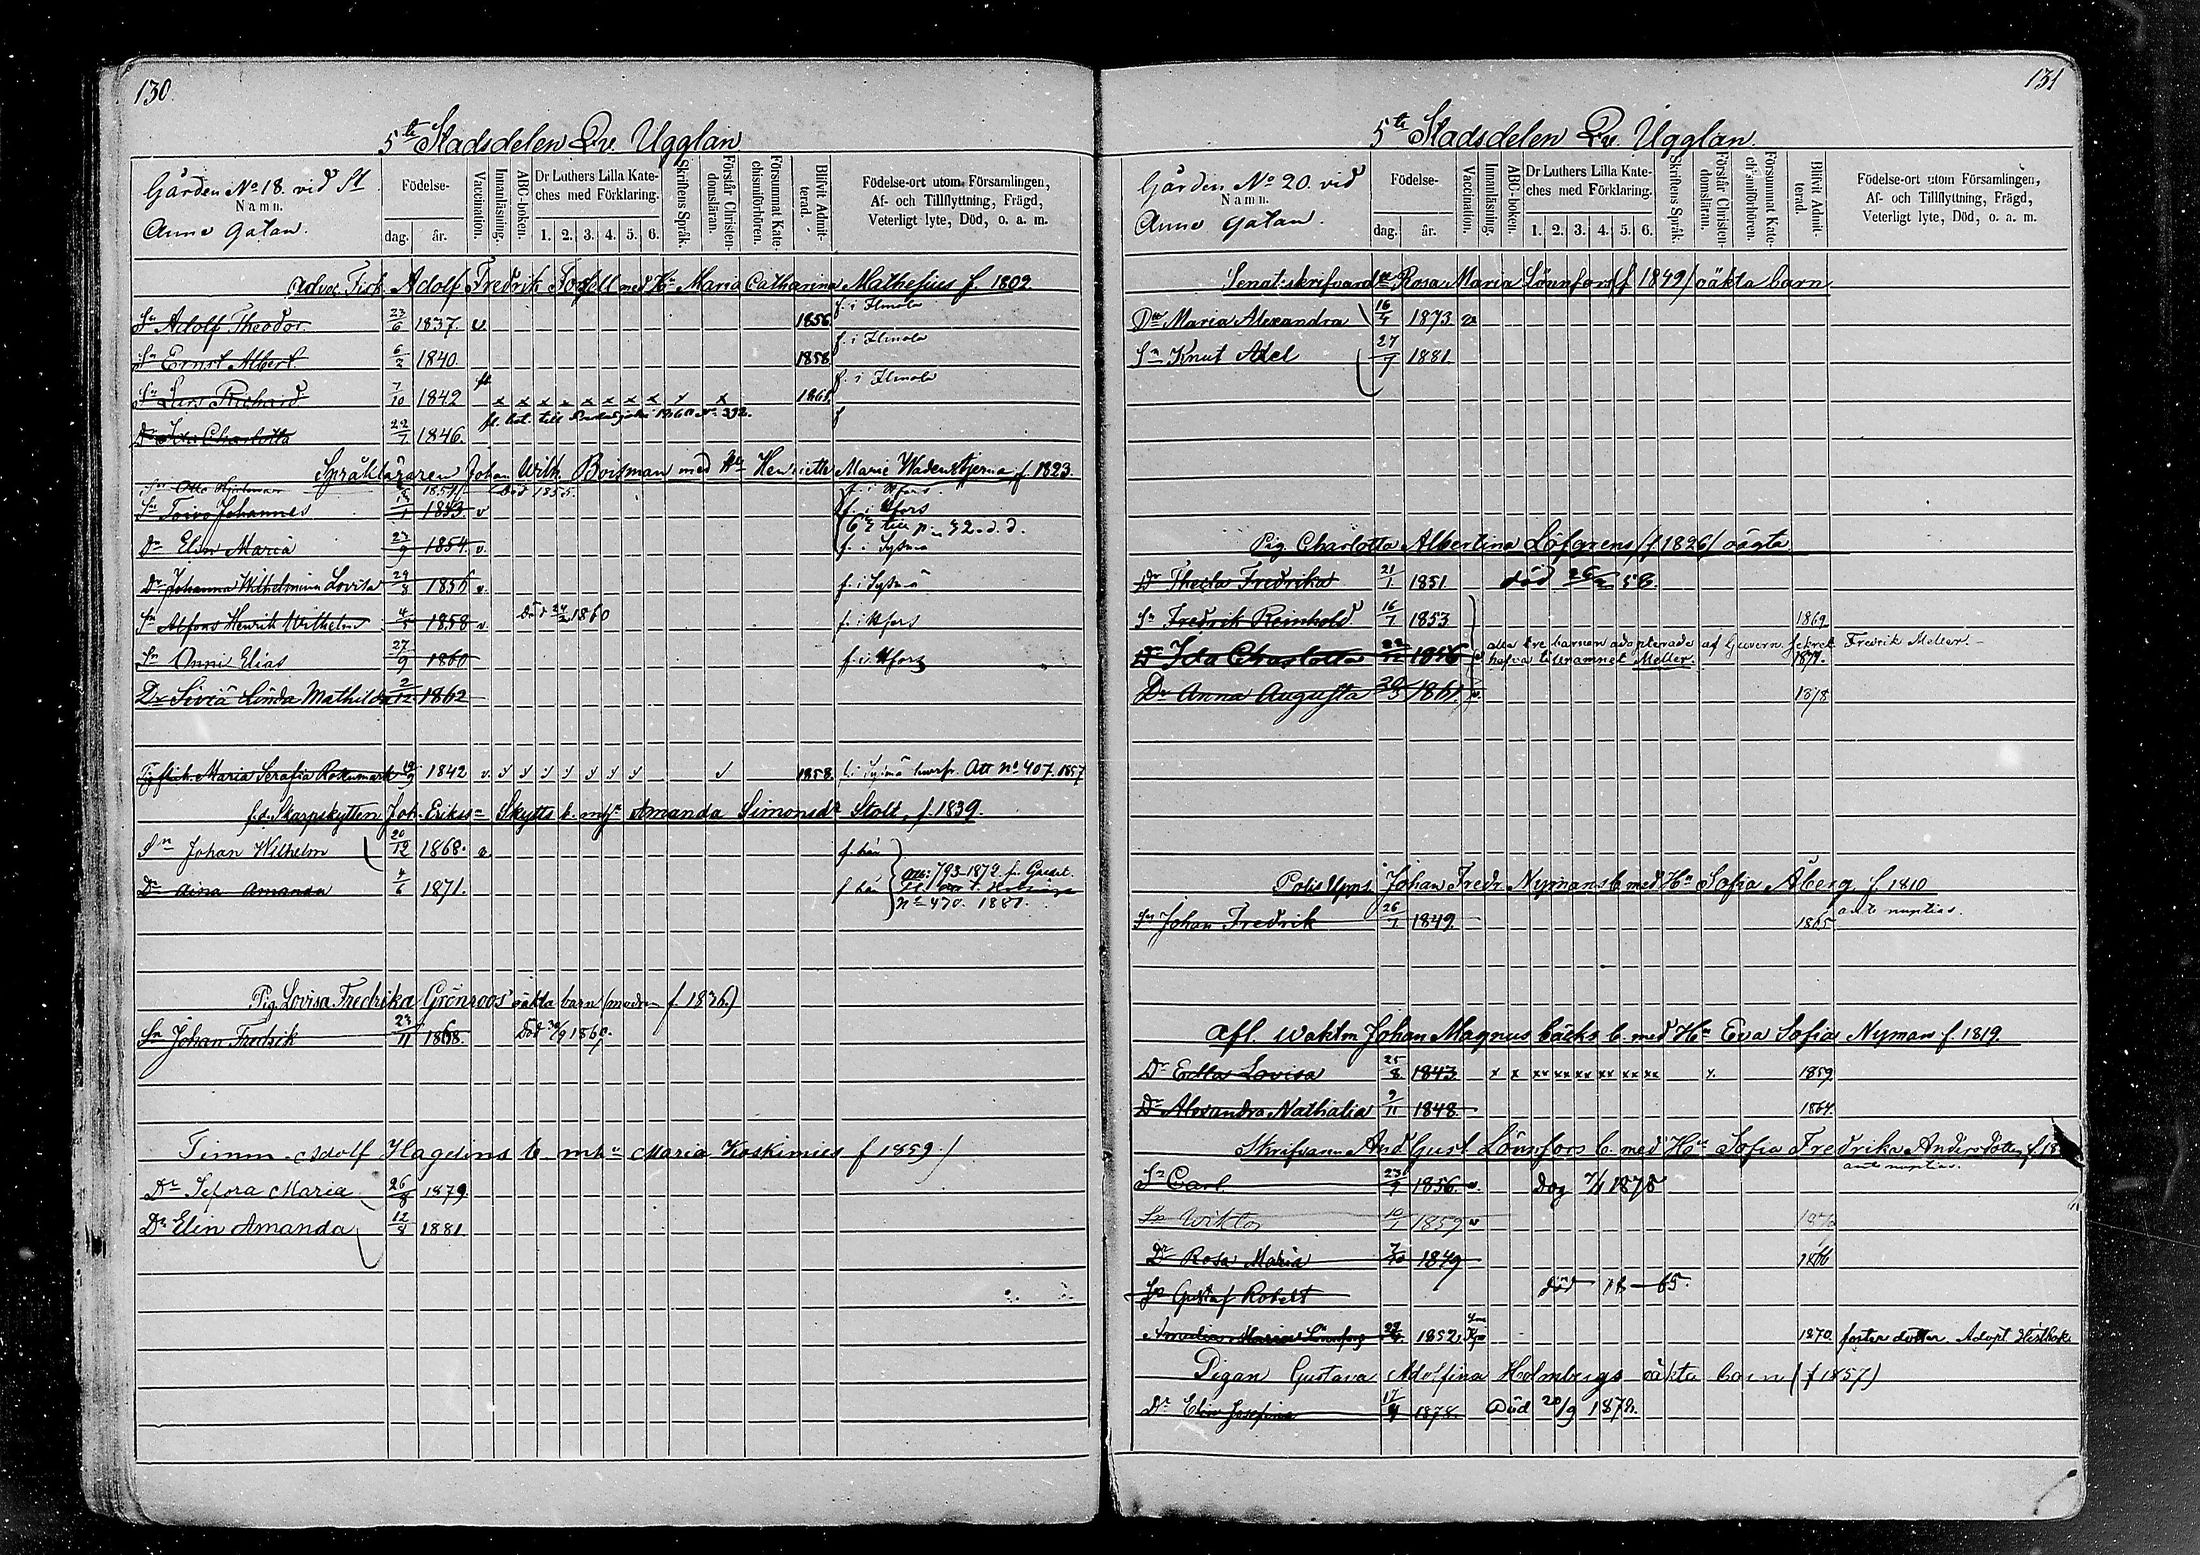 130.
5te Stadsdelen Qv. Ugglan
Gården No 18. vid St
Namn.
Anne gatan.
Födelse-
dag. år.
Vaccination.
Innanläsning.
ABC-boken.
Dr Luthers Lilla Kate-
ches med Förklaring.
1. 2. 3. 4. 5. 6.
Skriftens Språk.
Förstår Christen-
domsläran.
Försummat Kate-
chismiförhören.
Blifvit Admit-
terad.
Födelse-ort utom Församlingen,
Af- och Tillflyttning, Frägd,
Veterligt lyte, Död, o. a. m.
Adolf Fredrik med Hu Maria Catharina Mathesius f. 1802
Sn Adolf Theodor. 23/6 1837. v. 1856. f. i Ilmola
Sn Ernst Albert. 1840. 1858 f. i Ilmola
Sn Lars Richard 7/10 1842 x x x x x x x x x f. i Ilmola
Dr Ida Charlotta 22/1 1846.
Språkläraren Johan Wilh. Boisman med Hu Henrietta Marie Wadenstjerna f. 1823.
Sn Otto Död 1855. f. i Hfors.
Sn Toivo Johannes 1853. v f. i Hfors
Dr Elin Maria 23/9 1854. v. f. i Sysmä
Dr Johanna Wilhelmina Lovisa 29/8 1856 v. f. i Sysmä
Sn Alfons Henrik Wilhelm 1858 v Död 1860 f. i Hfors
Sn Onni Elias 27/9 1860 f. i Hfors
Dr Siviä Linda Mathilda 2/12 1862
Maria Serafia 1842 v. 1858. f. i Sysmä Att No 407. 1857
f. d. Skarpskytten Joh. Erikss Skytts b. mhu Amanda Simonsdr Stolt, f. 1839.
Sn Johan Wilhelm 20/12 1868. v. f. här
Dr Aina Amanda 4/6 1871. f. här
793-1872.
No 470. 1881.
Pig. Lovisa Fredrika Grönroos' oäkta barn (modren f. 1836.)
Sn Johan Fredrik 23/11 1868. Död 30/9 1869.
Timm. Adolf Hagelins b. mhu Maria Koskimies f 1859.)
Dr Sefora Maria 26/8 1879.
Dr Elin Amanda 12/8 1881
131
5te Stadsdelen Qv. Ugglan.
Gården No 20. vid
Namn.
Anne gatan.
Födelse-
dag. år.
Vaccination.
Innanläsning.
ABC-boken.
Dr Luthers Lilla Kate-
ches med Förklaring.
1. 2. 3. 4. 5. 6.
Skriftens Språk.
Förstår Christen-
domsläran.
Försummat Kate-
chismiförhören.
Blifvit Admit-
terad.
Födelse-ort utom Församlingen,
Af- och Tillflyttning, Frägd,
Veterligt lyte, Död, o. a. m.
Rosa Maria Lönnfors (f 1849) oäkta barn
Maria Alexandra 1873
Sn Knut Axel 27/9 1881.
Pig. Charlotta Albertina Löfgrens (f 1826) oägta
Dr Thecla Fredrika 21/1 1851. död
Sn Fredrik Reinhold 16/7 1853 1869
Dr Ida Charlotta 1856 alla tre barnen adopterade af Guvern. Sekret. Fredrik Meller.
hafva tillnamnet Meller.
Dr Anna Augusta 1861. v. 1878
Johan Fredr. Nymans b. med Hu Sofia Åberg f. 1810
ante nuptias.
Sn Johan Fredrik 26/7 1849. 1865
Afl. Waktm Johan Magnus bäcks b. med Hu Eva Sofia Nyman f. 1819.
Dr Edla Lovisa 25/8 1843. x x xx xx xx xx xx xx x. 1859
Dr Alexandra Nathalia 9/11 1848. 1864
Skrifvaren And Gust. Lönnfors b. med Hu Sofia Fredrika
ante nuptias.
Sn Carl. 23/9 1856. v. Dog 1875
Sn Wiktor 1859 v
Dr Rosa Maria 7/10 1849 1866
Sn Gustaf Robert död 18-65.
Amalia Maria Lönnfors 1852 1870. foster dotter. Adopt.
Pigan Gustava Adolfina Holmbergs oäkta barn (f 1857)
Dr Elin Josefina 1878. Död 20/9 1878.